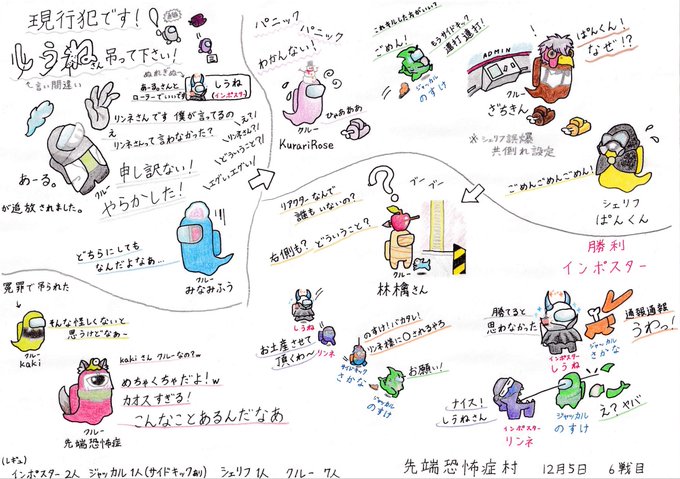 現行犯です!
しうねさん吊って下さい!
↳言い間違い
ぬれぎぬ
あーる。さんと
ローラーでいいです
しうね
インポスター
リンネさんです 僕が言ってるの
え
リンネさんって言わなかった?
え?え?
リンネさん?
どういうこと?
エグいエグい!
申し訳ない!
やらかした!
クルー
あーる。
が追放されました。
どちらにしても
なんだよなあ…
クルー
みなみふう
パニック
パニック
わかんない!
クルー
KurariRose
ひゃああああ
これキルした方がいい?
ごめん!
もうサイドキック
連打連打!
ジャッカル
のすけ
ADMIN
ぱんくん!
なぜ!?
クルー
ざちきん
※シェリフ誤爆
共倒れ設定
ごめんごめんごめん!
シェリフ
ぱんくん
勝利
インポスター
リアクターなんで
誰もいないの?
右側も? どういうこと?
?
ブー
ブー
クルー
林檎さん
冤罪で吊られた
そんな怪しくないと
思うけどなあ~
クルー
kaki
kakiさん クルーなの?w
めちゃくちゃだよ!w
カオスすぎる!
こんなことあるんだなあ
クルー
先端恐怖症
しうね
お土産させて
頂くわ~
リンネ
のすけ!バカタレ!
リンネ様に○されるやろ
サイドキック
さかな
お願い!
ジャッカル
のすけ
勝てると
思わなかった
インポスター
しうね
通報通報
うわっ!
ジャッカル
さかな
ナイス!
しうねさん
インポスター
リンネ
ジャッカル
のすけ
え?ヤバ
(レギュ)
インポスター 2人 ジャッカル 1人(サイドキックあり) シェリフ 1人 クルー 7人
先端恐怖症村 12月5日 6戦目